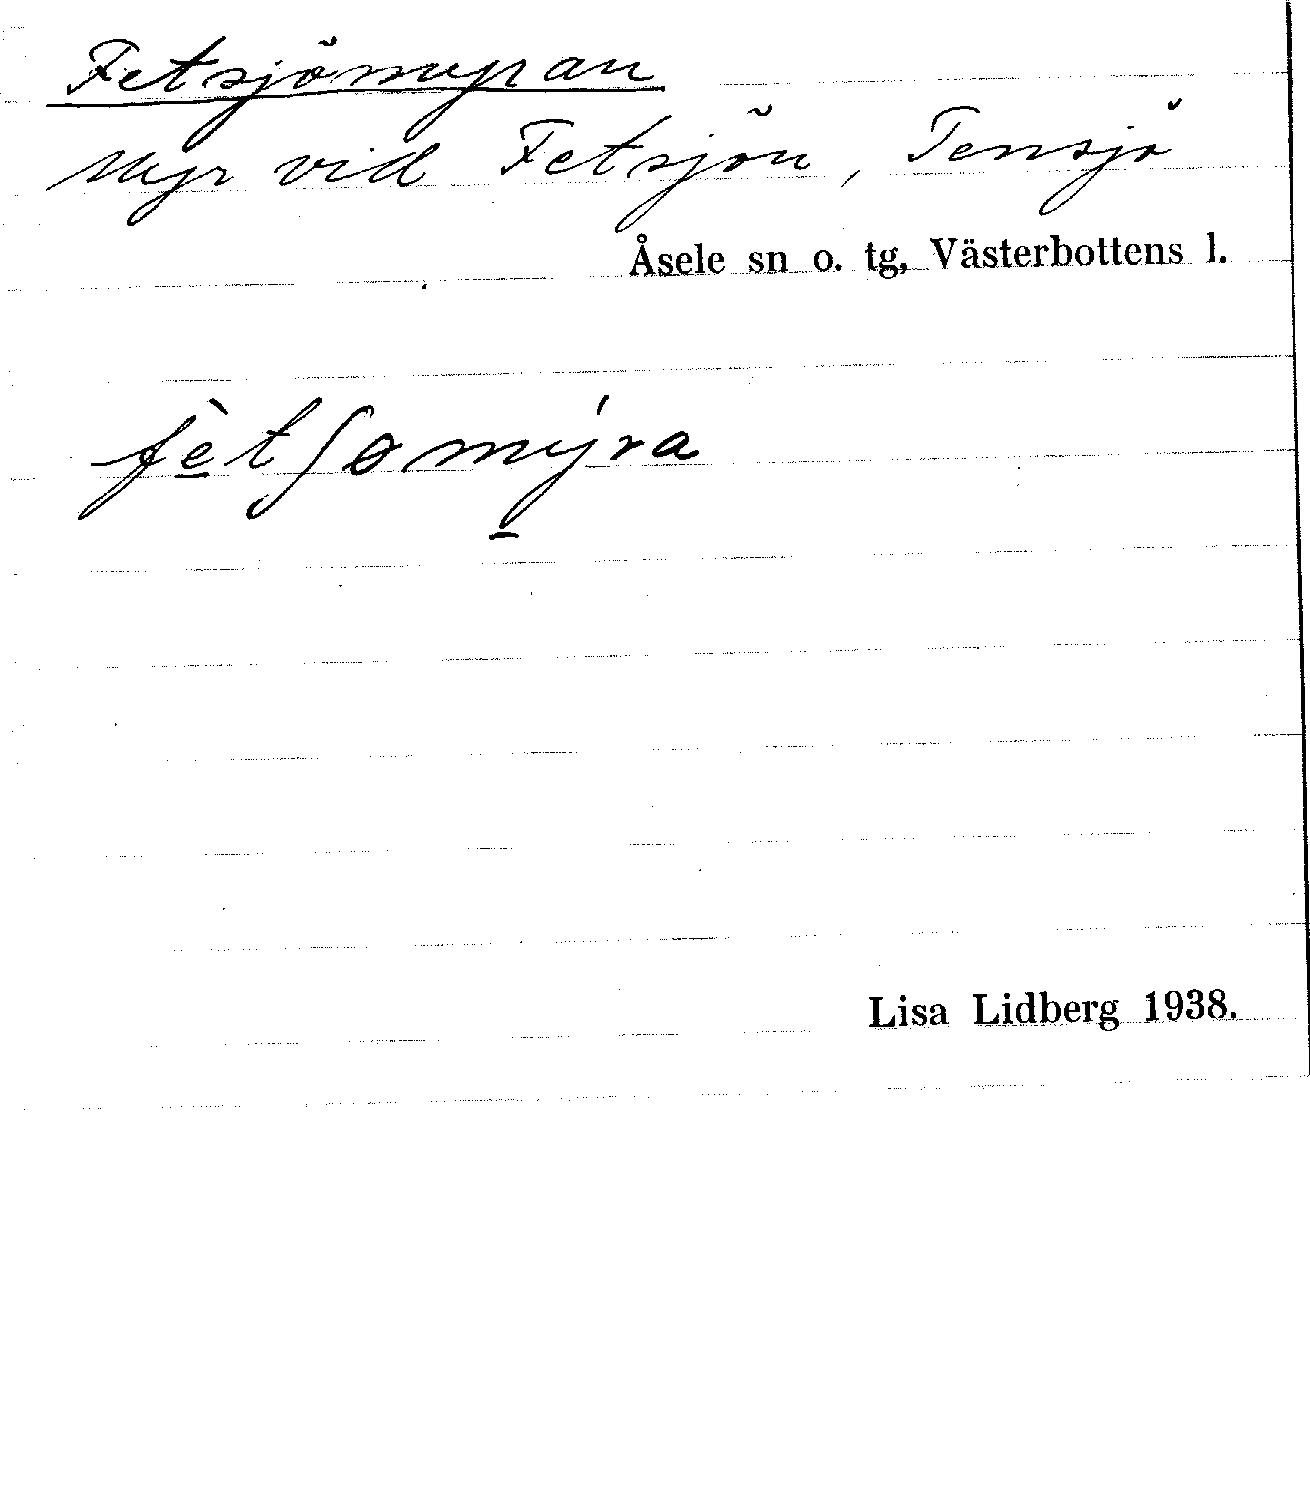 Fetsjömyran
Myr vid Fetsjön, Tensjö
Åsele sn o. tg, Västerbottens l.
fèt∫ømýra
Lisa Lidberg 1938.